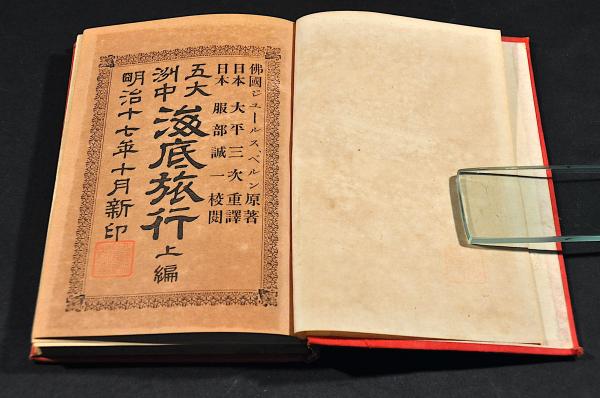 佛國ジュールス、ベルン原著
日本 大平三次重譯
日本 服部誠一校閲
五大洲中 海底旅行 上編
明治十七年十月新印